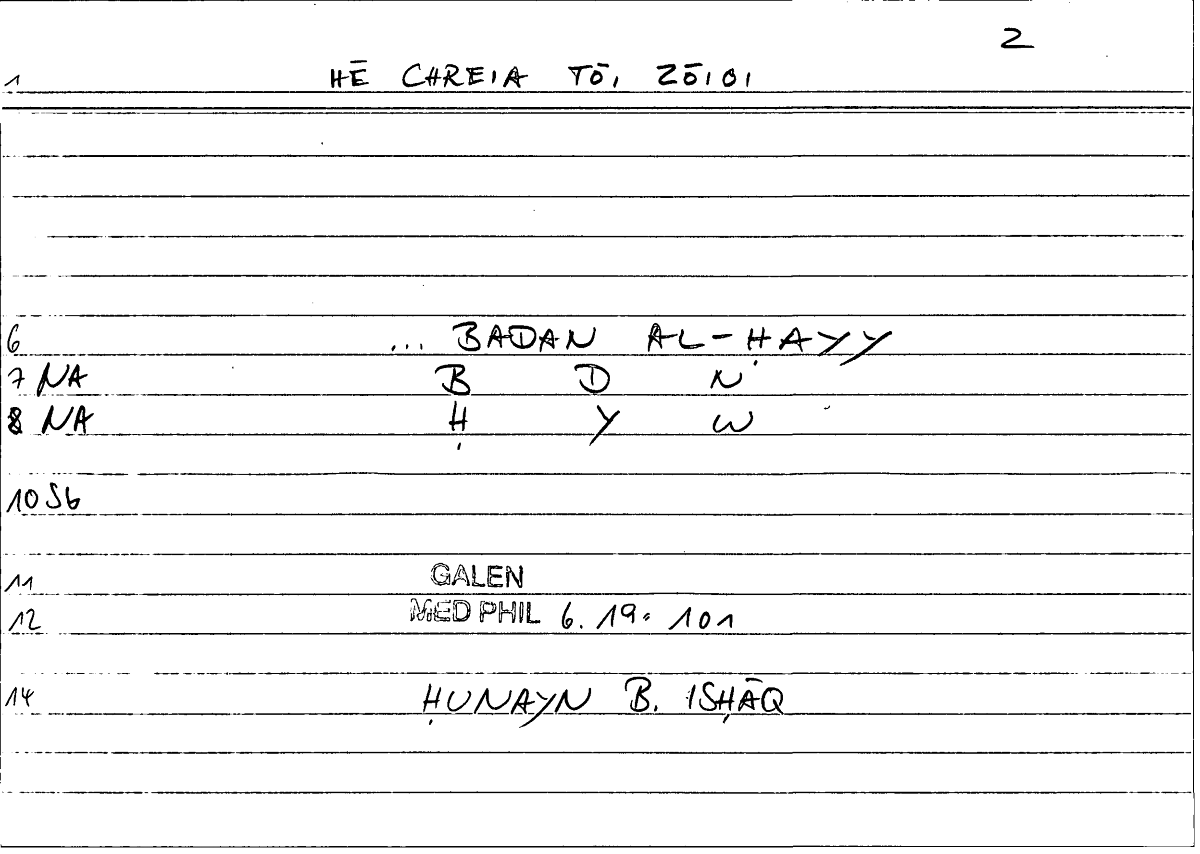 2
1 HĒ CHREIA TŌI ZŌIOI
6 ... BADAN AL-ḤAYY
7 NA B D N
8 NA Ḥ Y W
10 Sb
11 GALEN
12 MED PHIL 6. 19. 101
14 ḤUNAYN B. ISḤĀQ